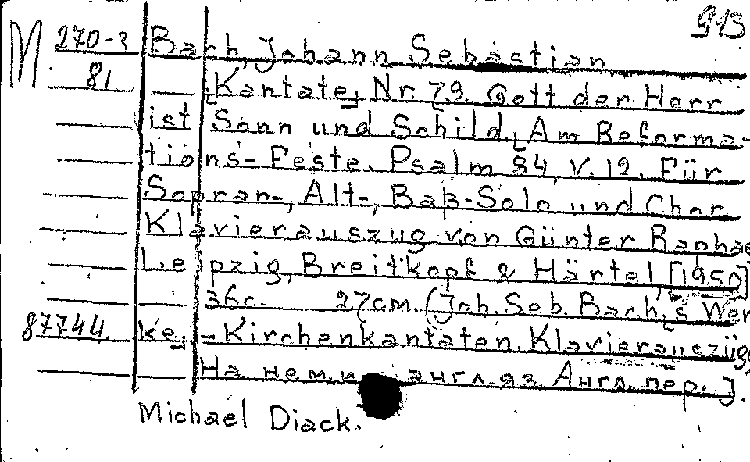 913
M 270-2 Bach, Johann Sebastian
81 [Kantate, Nr. 79. Gott der Herr
ist Sonn und Schild. Am Reforma-
tions-Feste. Psalm 84, V. 12. Für
Sopran-, Alt-, Baß-Solo und Chor
Klavierauszug von Günter Raphae
Leipzig, Breitkopf & Härtel [1950]
36 с. 27 cm. (Joh. Seb. Bach,s Wer
87744 ke. - Kirchenkantaten Klavierauszüge
На нем. и англ яз Англ пер.].
Michael Diack.